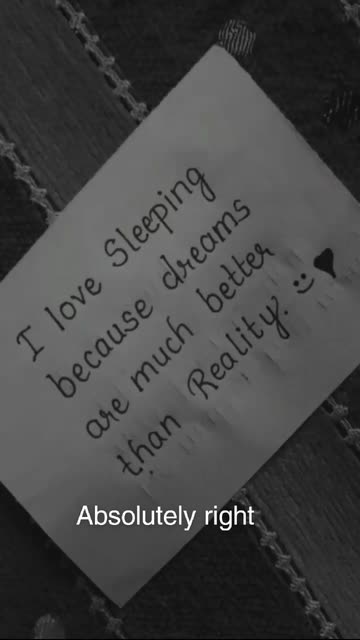 I love Sleeping
because dreams
are much better
than Reality. 🙂♥
Absolutely right